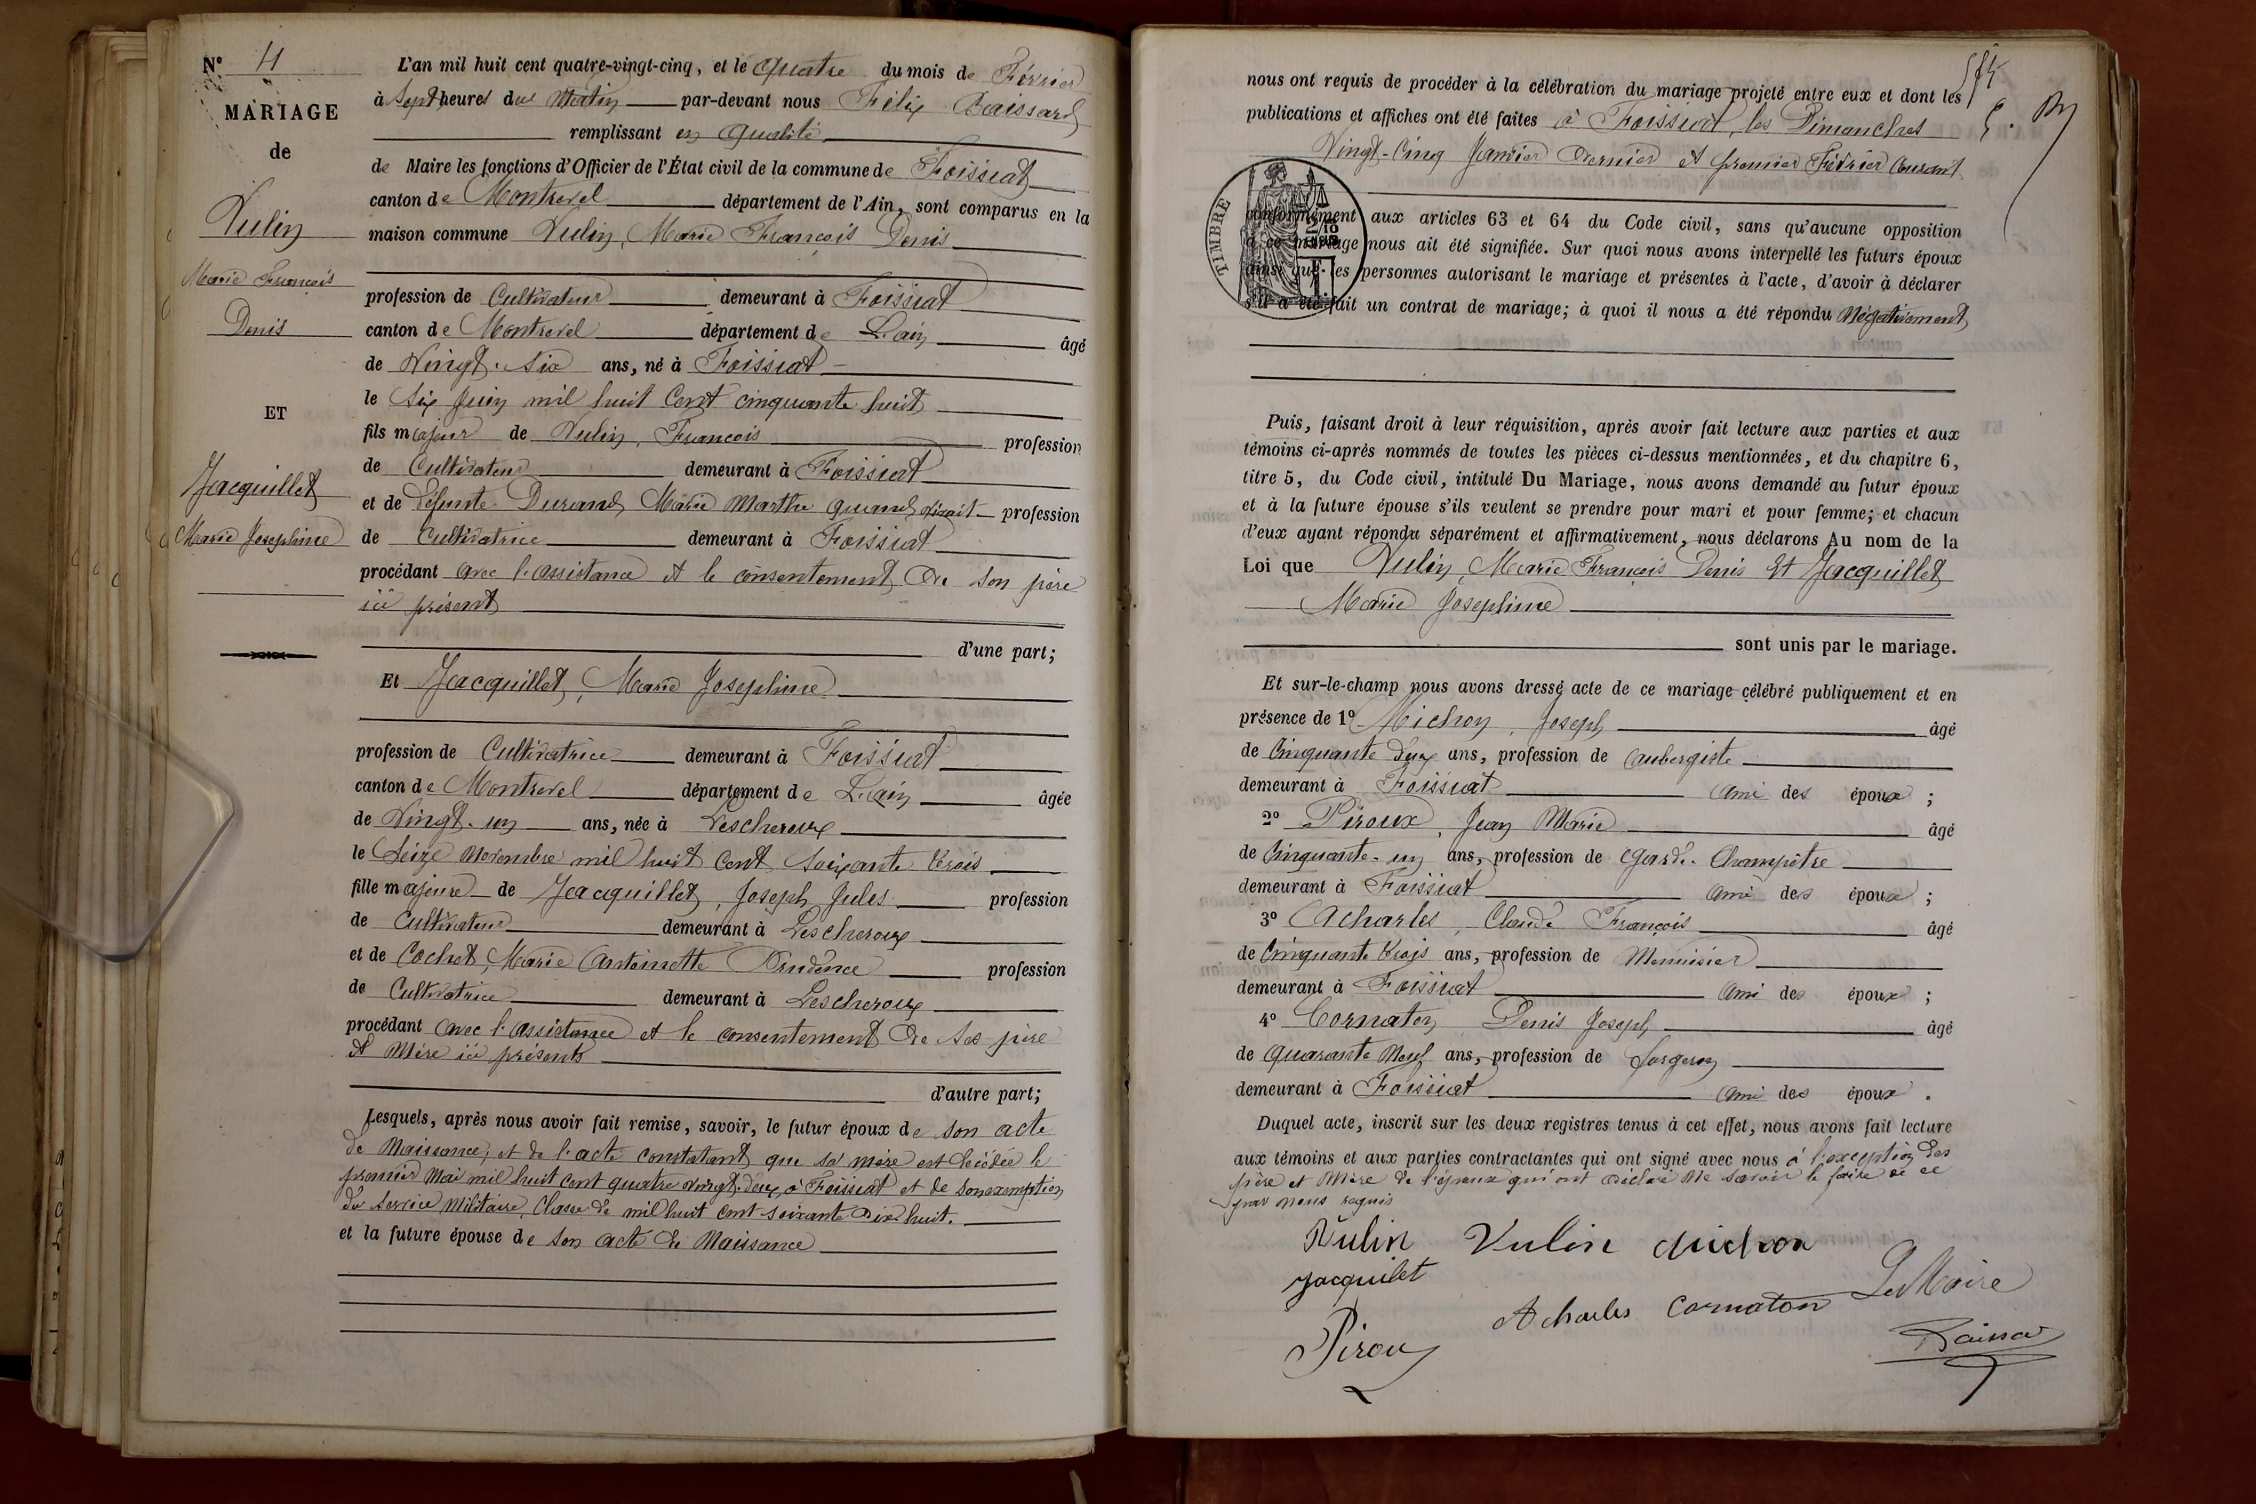 N° 11
MARIAGE
de
Vulin
Marie François
Denis
ET
Jacquillet
Marie Joséphine
L'an mil huit cent quatre-vingt-cinq, et le quatre du mois de Février
à Sept heures du Matin par-devant nous Félix Baissard
remplissant en qualité
de Maire les fonctions d'Officier de l'État civil de la commune de Foissiat
canton de Montrevel département de l'Ain, sont comparus en la
maison commune Vulin, Marie François Denis
profession de Cultivateur demeurant à Foissiat
canton de Montrevel département de L'ain âgé
de Vingt-six ans, né à Foissiat
le six Juin mil huit Cent cinquante huit
fils majeur de Vulin, François profession
de Cultivateur demeurant à Foissiat
et de défunte Durand Marie Marthe quand vivait profession
de Cultivatrice demeurant à Foissiat
procédant avec l'assistance et le consentement de son père
ici présent
d'une part;
Et Jacquillet, Marie Joséphine
profession de Cultivatrice demeurant à Foissiat
canton de Montrevel département de L'ain âgée
de Vingt-un ans, née à Lescheroux
le Seize Novembre mil huit Cent Soixante trois
fille majeure de Jacquillet, Joseph Jules profession
de Cultivateur demeurant à Lescheroux
et de Cochet, Marie Antoinette Prudence profession
de Cultivatrice demeurant à Lescheroux
procédant avec l'assistance et le consentement de ses père
et Mère ici présents
d'autre part;
Lesquels, après nous avoir fait remise, savoir, le futur époux de son acte
de Naissance; et de l'acte constatant que sa mère est décédée le
premier Mai mil huit cent quatre vingt-deux, à Foissiat et de son exemption
du Service Militaire, Classe de mil huit cent soixante Dix huit.
et la future épouse de son acte de Naissance
nous ont requis de procéder à la célébration du mariage projeté entre eux et dont les
publications et affiches ont été faites à Foissiat, les Dimanches
Vingt-Cinq Janvier dernier et premier Février Courant
TIMBRE
conformément aux articles 63 et 64 du Code civil, sans qu'aucune opposition
à ce mariage nous ait été signifiée. Sur quoi nous avons interpellé les futurs époux
ainsi que les personnes autorisant le mariage et présentes à l'acte, d'avoir à déclarer
s'il a été fait un contrat de mariage; à quoi il nous a été répondu Négativement
Puis, faisant droit à leur réquisition, après avoir fait lecture aux parties et aux
témoins ci-après nommés de toutes les pièces ci-dessus mentionnées, et du chapitre 6,
titre 5, du Code civil, intitulé Du Mariage, nous avons demandé au futur époux
et à la future épouse s'ils veulent se prendre pour mari et pour femme; et chacun
d'eux ayant répondu séparément et affirmativement, nous déclarons Au nom de la
Loi que Vulin, Marie François Denis Et Jacquillet
Marie Joséphine
sont unis par le mariage.
Et sur-le-champ nous avons dressé acte de ce mariage célébré publiquement et en
présence de 1° Michon, Joseph âgé
de Cinquante deux ans, profession de aubergiste
demeurant à Foissiat ami des époux ;
2° Piroux, Jean Marie âgé
de Cinquante-un ans, profession de Garde-Champêtre
demeurant à Foissiat ami des époux ;
3° Acharles, Claude François âgé
de Cinquante trois ans, profession de Menuisier
demeurant à Foissiat ami des époux ;
4° Cornaton Denis Joseph âgé
de quarante Neuf ans, profession de forgeron
demeurant à Foissiat ami des époux .
Duquel acte, inscrit sur les deux registres tenus à cet effet, nous avons fait lecture
aux témoins et aux parties contractantes qui ont signé avec nous à l'exception des
père et Mère de l'épouse qui ont déclaré Ne savoir le faire de ce
par nous requis
Vulin Vulin Michon
Jacquilet
Le Maire
Acharles Cornaton
Pirou